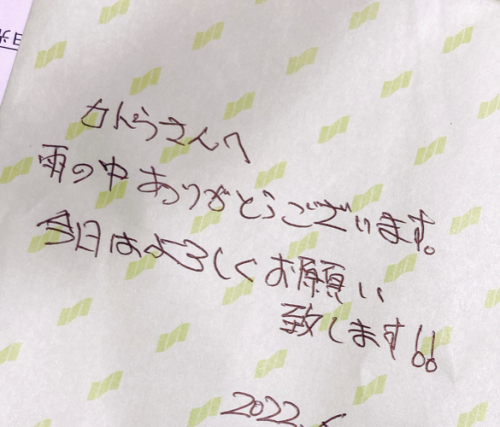 かんらさんへ
雨の中ありがとうございます。
今日はよろしくお願い
致します!!
2022.